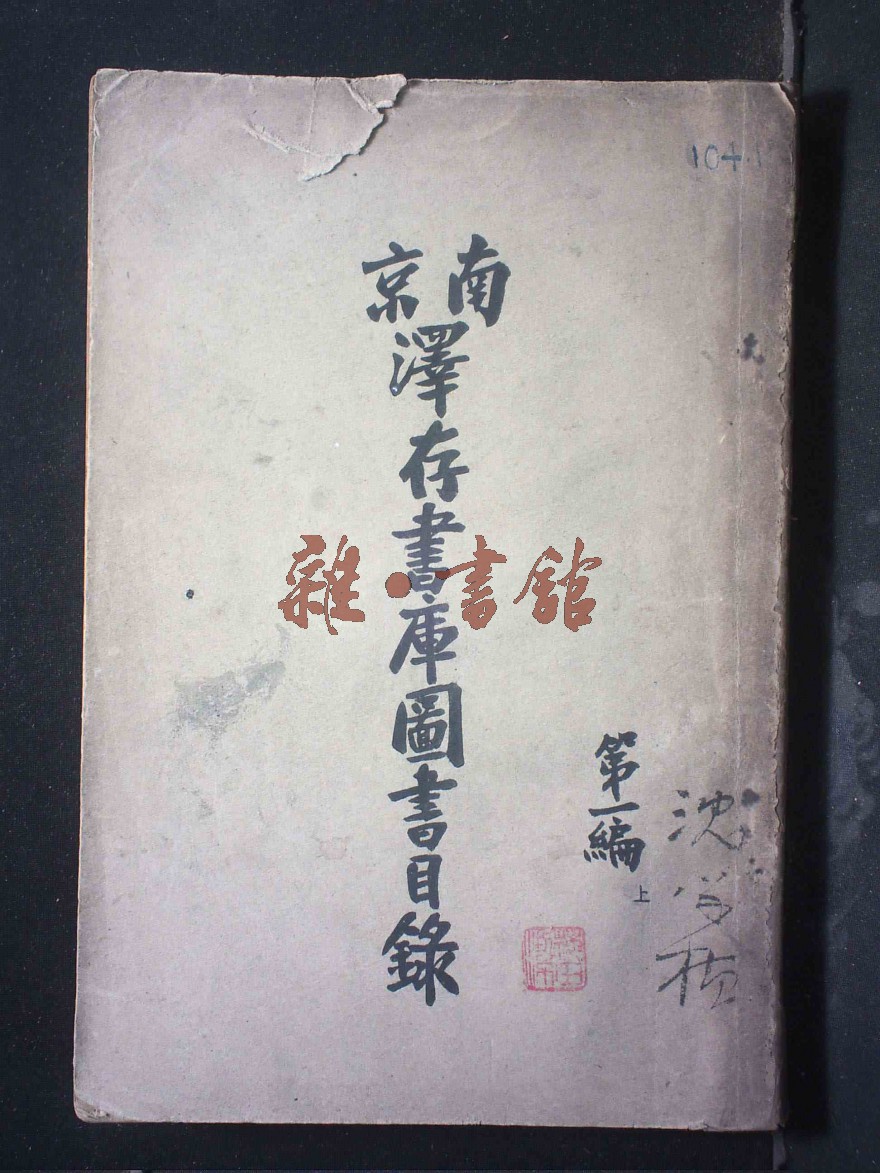 104.1
南京
澤存書庫圖書目錄
第一編
上
雜·書館